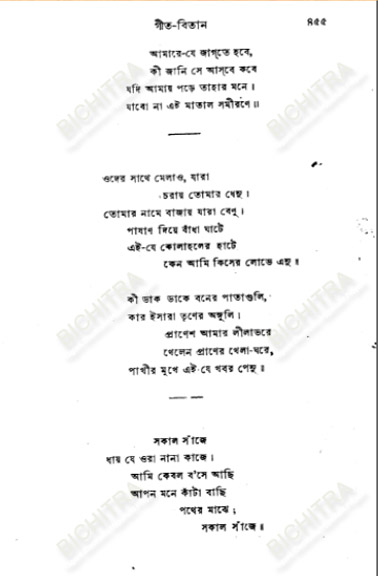 গীত-বিতান ৪৫৫
আমারে-যে জাগ্‌তে হবে,
কী জানি সে আস্‌বে কবে
যদি আমায় পড়ে তাহার মনে।
যাবো না এই মাতাল সমীরণে॥
ওদের সাথে মেলাও, যারা
চরায় তোমার ধেনু।
তোমার নামে বাজায় যারা বেণু।
পাষাণ দিয়ে বাঁধা ঘাটে
এই-যে কোলাহলের হাটে
কেন আমি কিসের লোভে এনু॥
কী ডাক ডাকে বনের পাতাগুলি,
কার ইসারা তৃণের অঙ্গুলি।
প্রাণেশ আমার লীলাভরে
খেলেন প্রাণের খেলা-ঘরে,
পাখীর মুখে এই-যে খবর পেনু॥
সকাল সাঁজে
ধায় যে ওরা নানা কাজে।
আমি কেবল ব'সে আছি
আপন মনে কাঁটা বাছি
পথের মাঝে;
সকাল সাঁজে॥
BICHITRA
BICHITRA
BICHITRA
BICHITRA
BICHITRA
BICHITRA